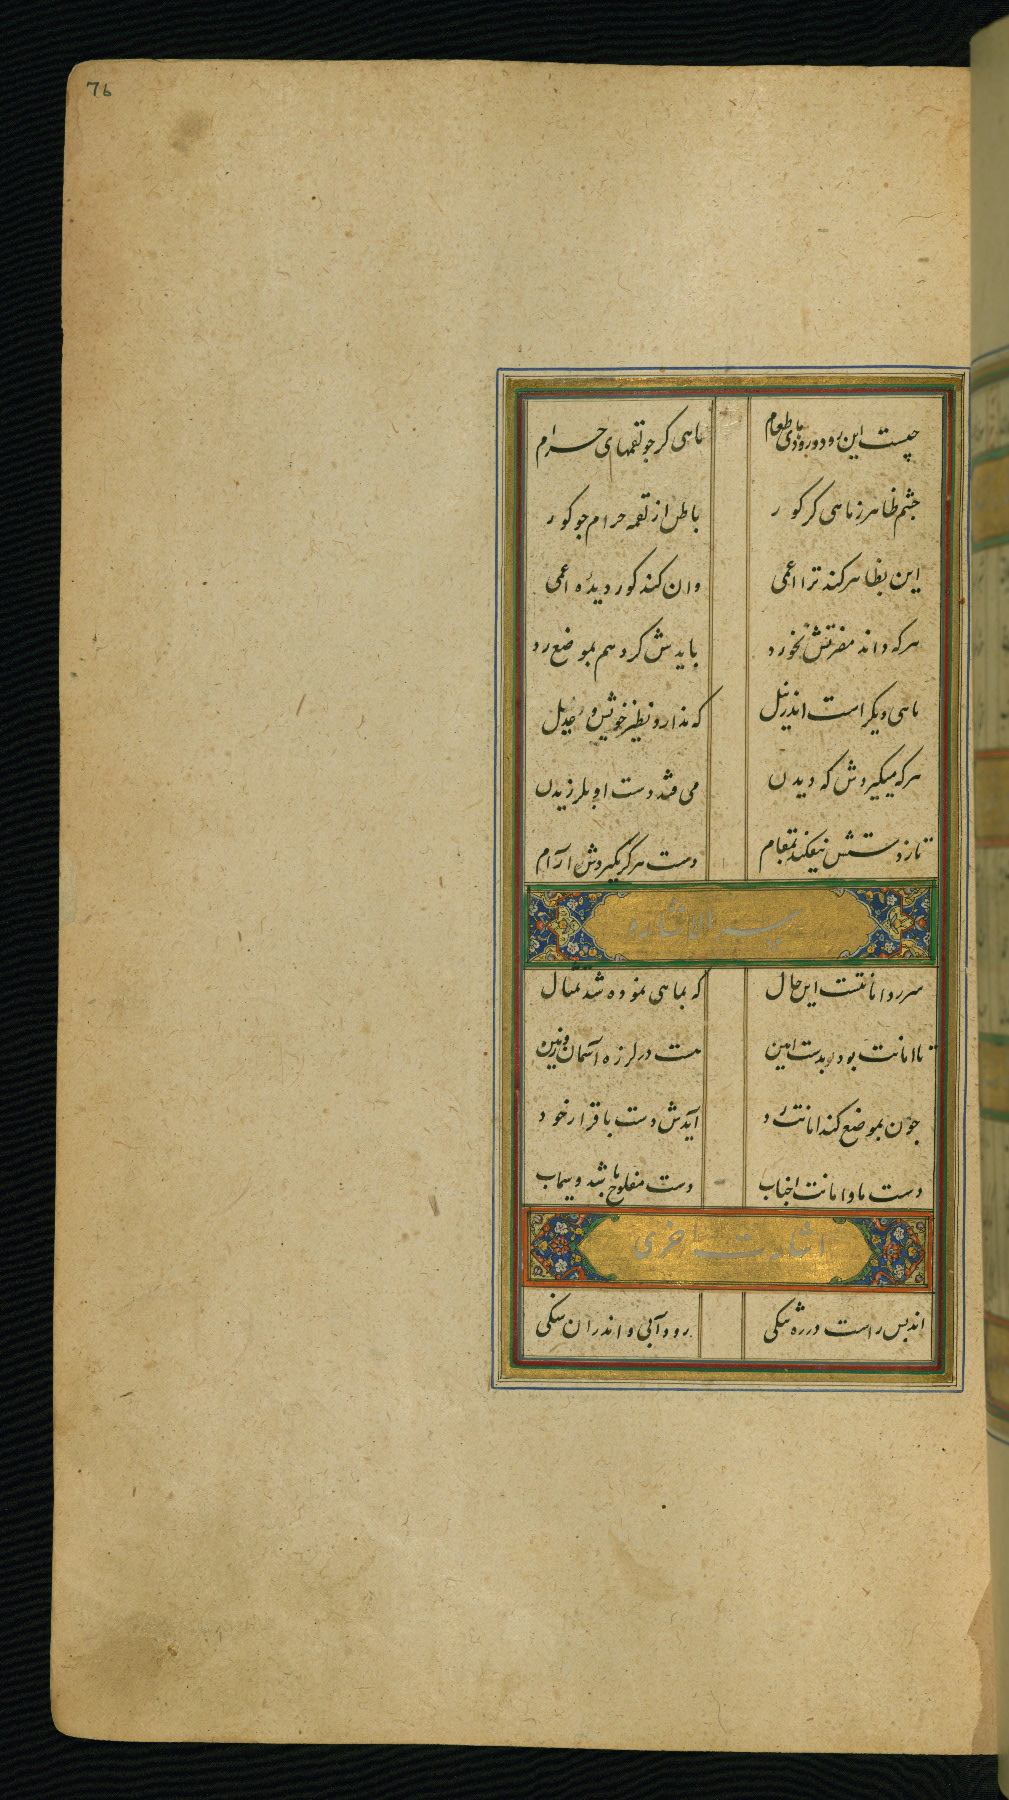 76
چیست این رود و رودهای طعام ماهی کر چو لقمهای حرام
چشم ظاهر ز ماهی کر کور باطن از لقمه حرام چو کور
این بظاهر کند ترا اعمی وان کند کور دیده اعمی
هرکه داند مضرتش نخورد بایدش کرد هم بموضع رد
ماهی دیگر است اندر نیل که ندارد نظیر خویش و عدیل
هرکه میگیردش که دیدن می فتد دست او بلرزیدن
تا ز دستش نیفکند بمقام دست هرگز نگیردش آرام
سر الاشاره
سر رد امانتست این حال که بماهی نموده شد تمثال
تا امانت بود بدست امین هست در لرزه آسمان و زمین
چون بموضع کند امانت رد آیدش دست با قرار خود
دست ما و امانت دست مفلوج باشد و سیماب
اشارت اخری
اندلس راست دره تنکی رود آبی و اندران سنکی